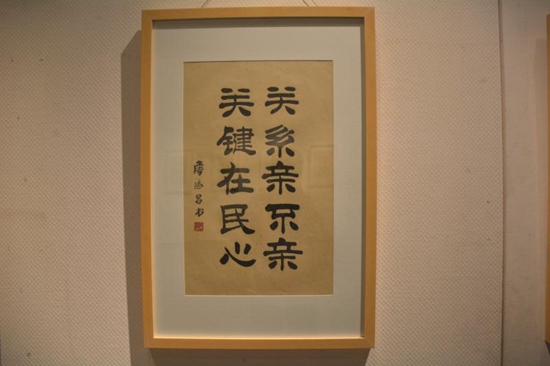 关系亲不亲
关键在民心